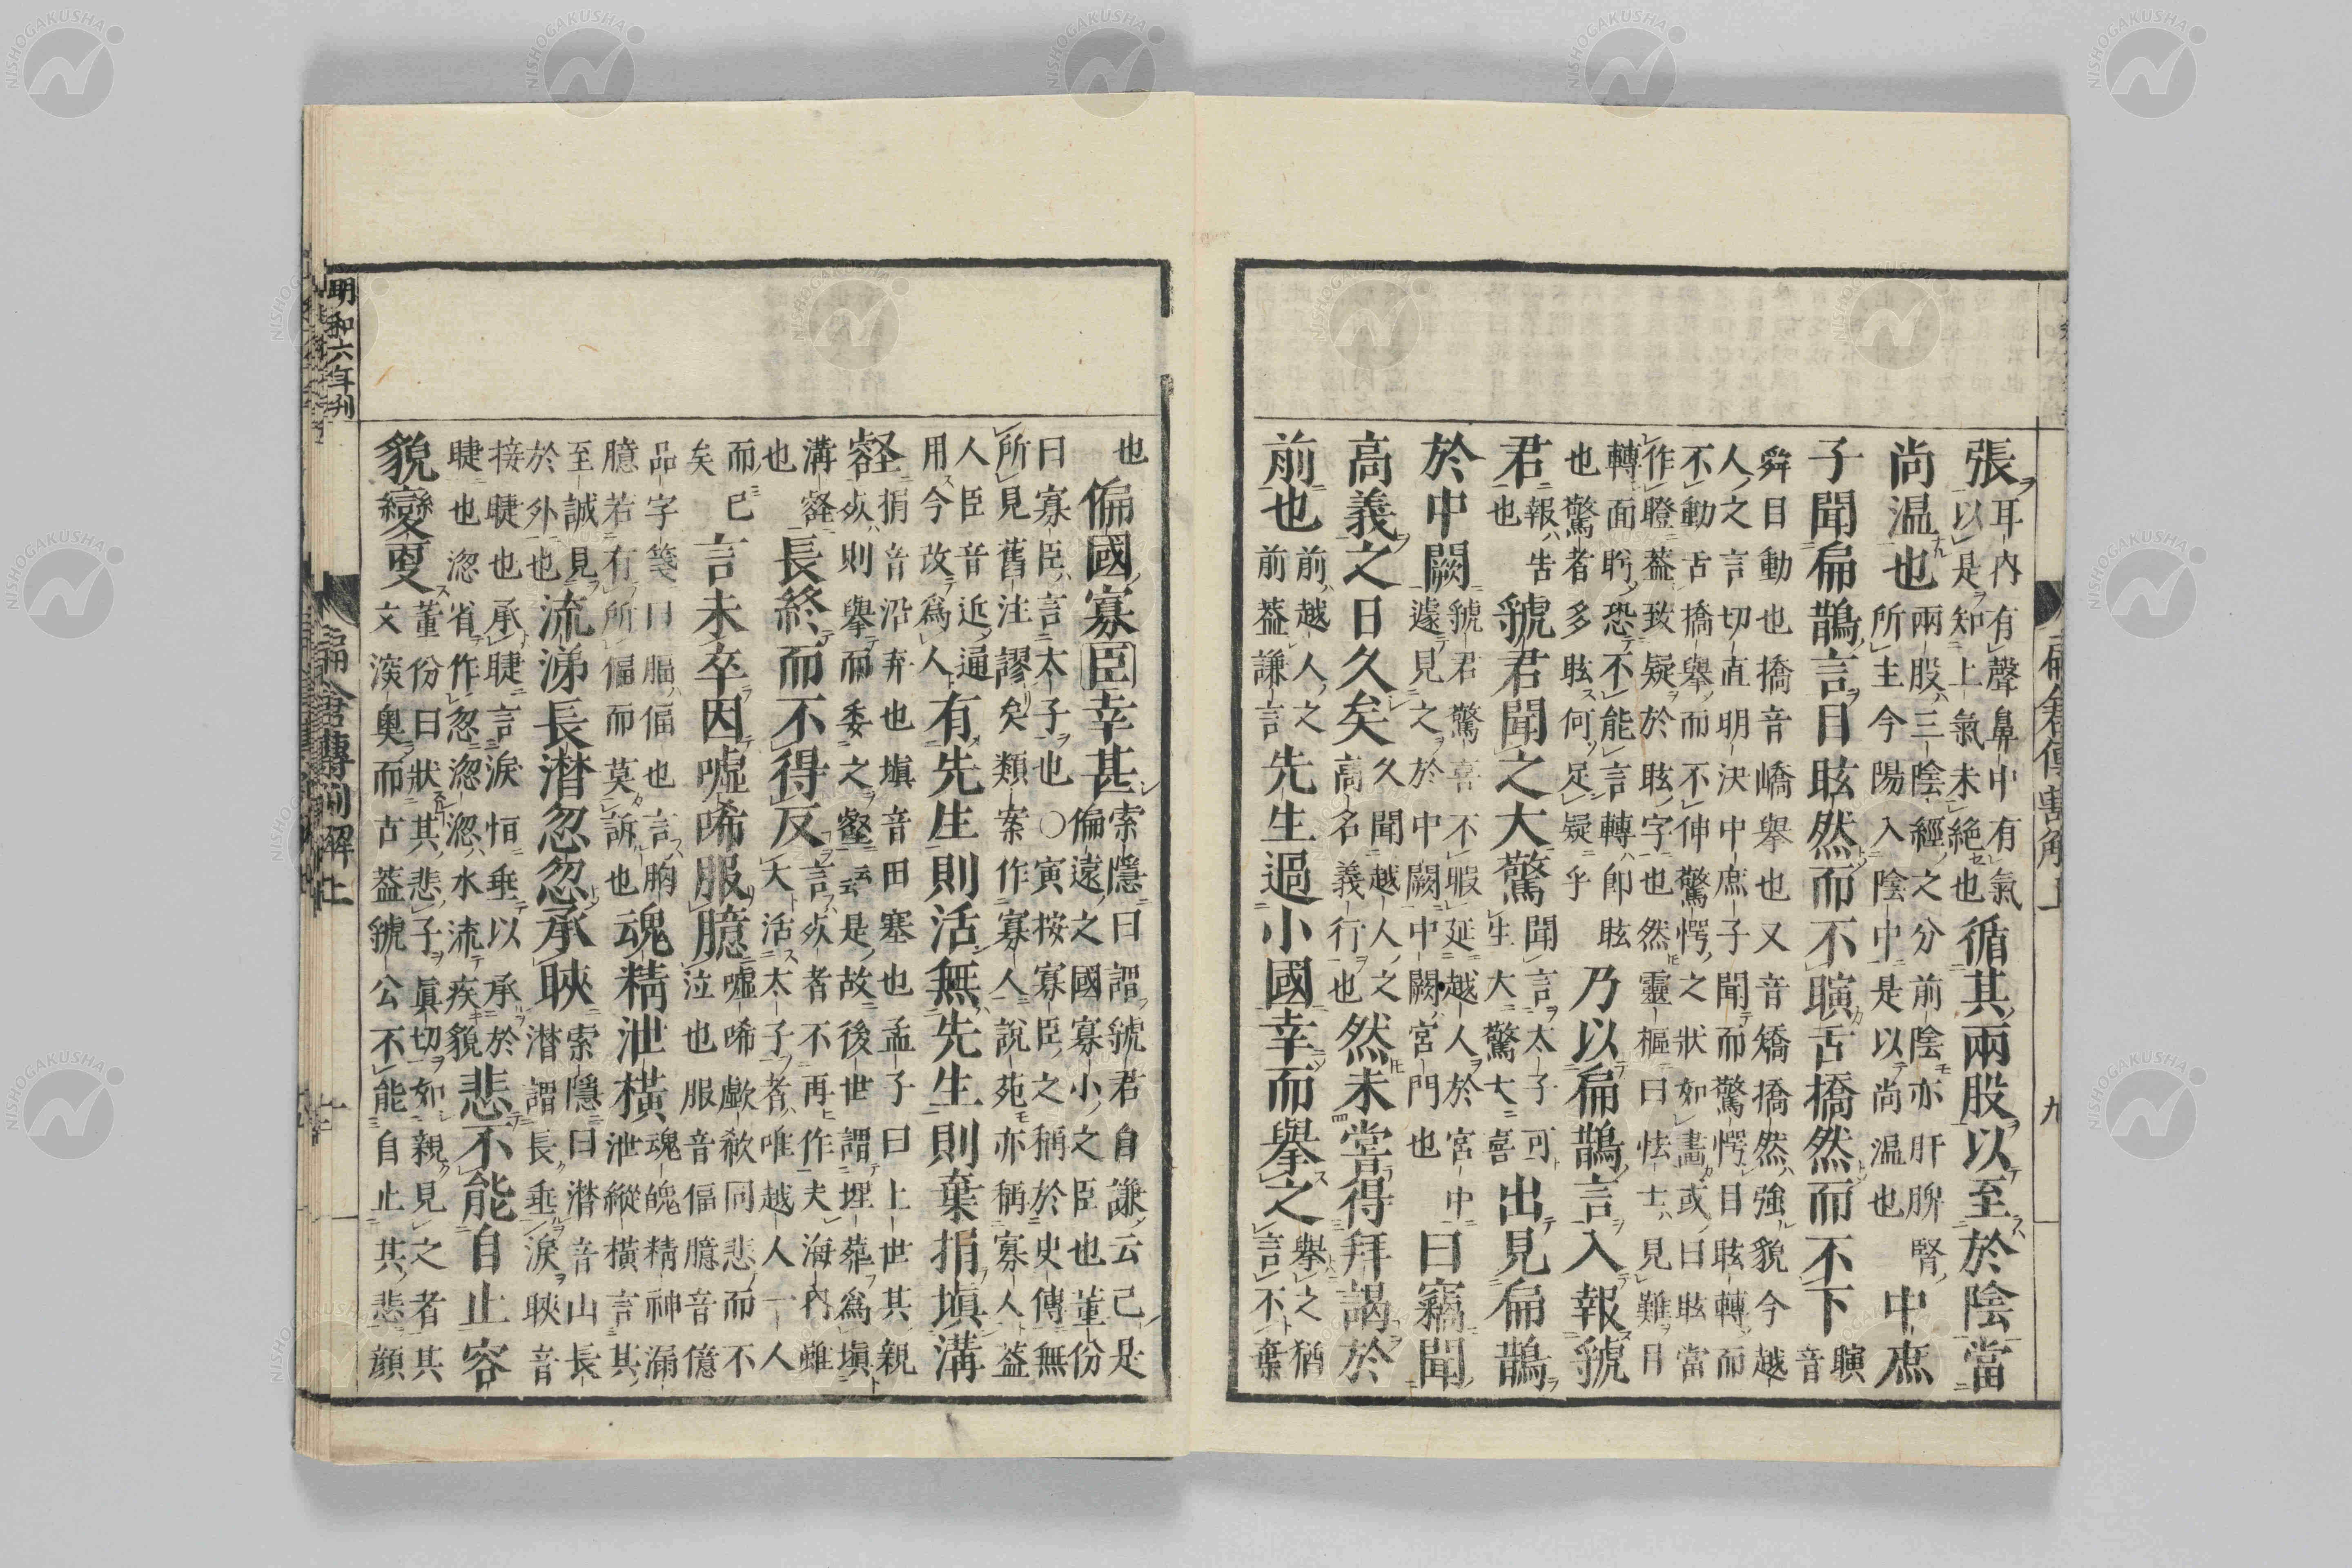 扁倉傳割解上 九
張耳內有聲鼻中有氣
以是知上氣未絶也循其兩股以至於陰當
尚温也兩股三陰經之分前陰亦肝脾腎
所主今陽入陰中是以尚温也中庶
子聞扁鵲言目眩然而不瞚舌撟然而不下瞚
音
舜目動也撟音嶠舉也又音矯撟然強貌今越
人之言切直明決中庶子聞而驚愕目眩轉而
不動舌撟舉而不伸驚愕之狀如畵或曰眩當
作瞪蓋致疑於眩字也然靈樞曰怯士見難目
轉面盻恐不能言轉卽眩
也驚者多眩何足疑乎乃以扁鵲言入報虢
君報告
也虢君聞之大驚聞言太子可
生大驚大喜出見扁鵲
於中闕虢君驚喜不暇延越人於宮中
遽見之於中闕中闕宮門也曰竊聞
高義之日久矣久聞越人之
高名義行也然未嘗得拜謁於
前也前越人之
前蓋謙言先生過小國幸而舉之舉之猶
言不棄
也偏國寡臣幸甚索隱曰謂虢君自謙云己是
偏遠之國寡小之臣也董份
曰寡臣言太子也○寅按寡臣之稱於史傳無
所見舊注謬矣類案作寡人說苑亦稱寡人蓋
人臣音近通
用今改爲人有先生則活無先生則棄捐塡溝
壑捐音沿弃也塡音田塞也孟子曰上世其親
死則擧而委之壑云云是故後世謂埋葬爲塡
溝壑
也長終而不得反言死者不再作夫海內雖
大活太子者唯越人一人
而已
矣言未卒因噓唏服臆噓唏歔欷同悲而不
泣也服音偪臆音億
品字箋曰腷偪也言胸
臆若有所偪而莫訴也魂精泄橫魂魄精神漏
泄縱橫言其
至誠見
於外也流涕長潸忽忽承䀹索隱曰潸音山長
謂長垂淚䀹音
接睫也承睫言淚恒垂以承於
睫也㴘省作忽㴘㴘水流疾貌悲不能自止容
貌變更董份曰狀其悲子眞切如親見之者其
文深奧而古蓋虢公不能自止其悲顔
明和六年刊
扁倉傳割解上
NISHOGAKUSHA